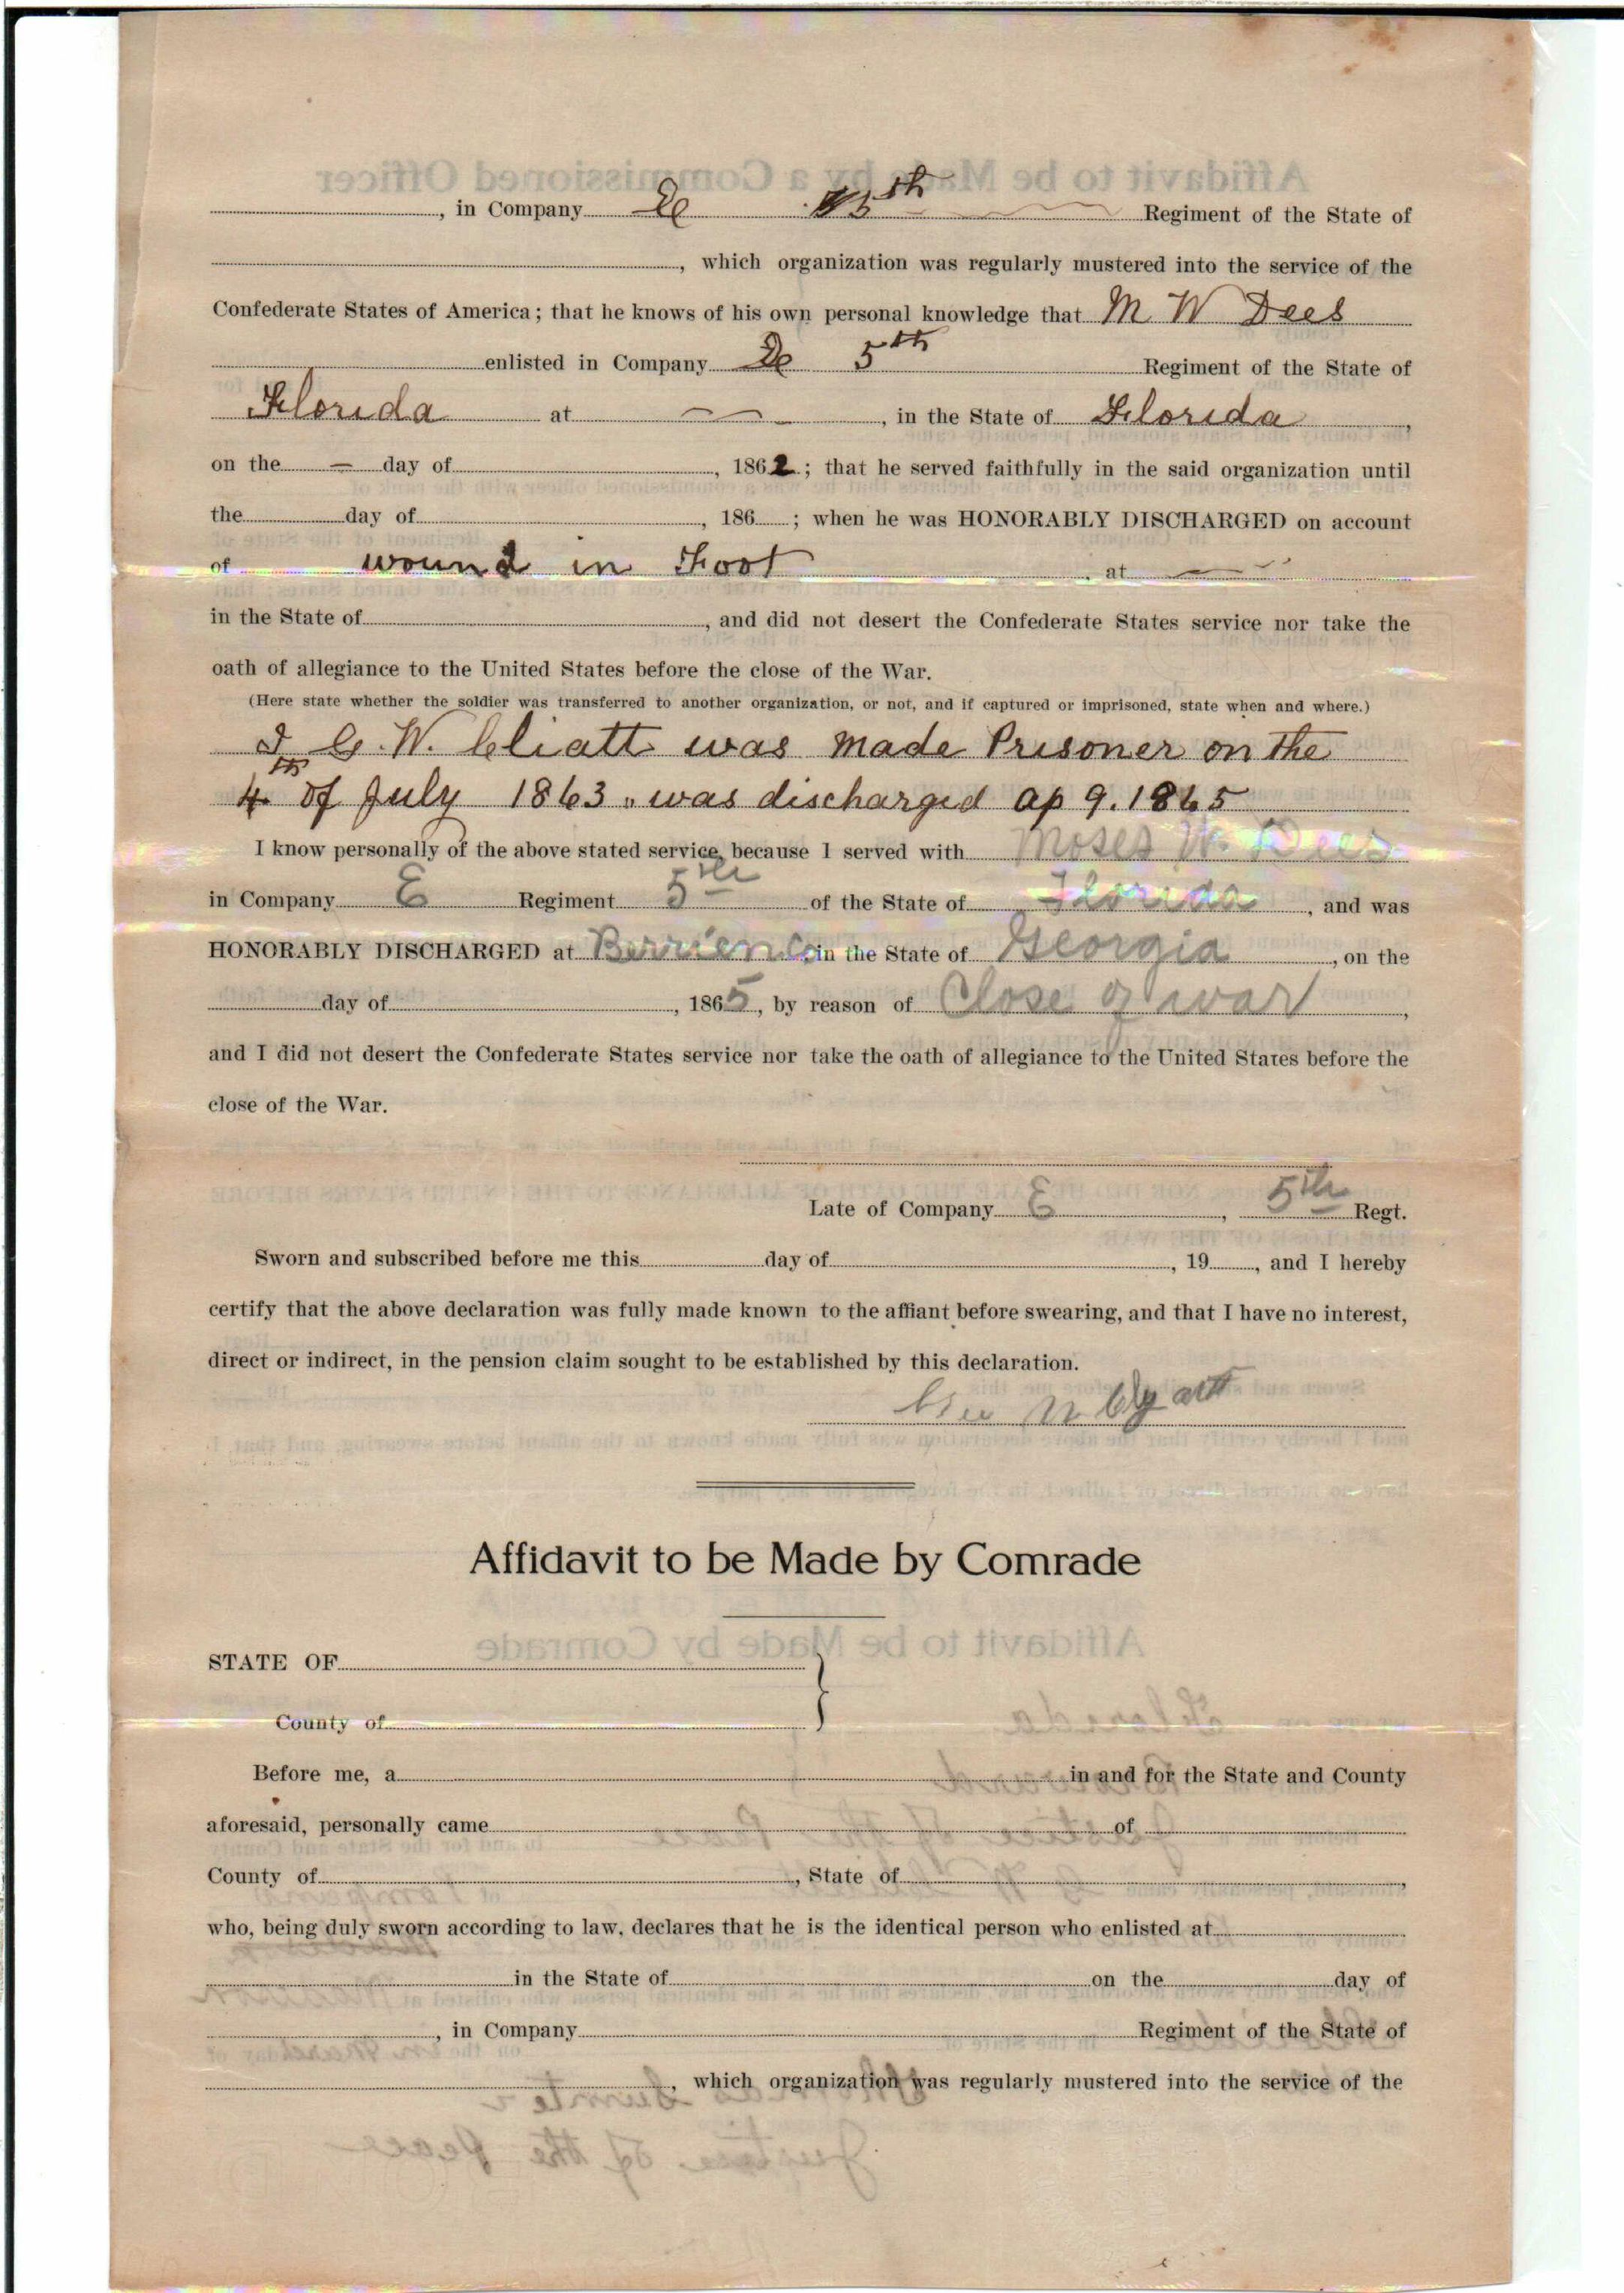 , in Company E 5th Regiment of the State of
, which organization was regularly mustered into the service of the
Confederate States of America; that he knows of his own personal knowledge that M W Dees
enlisted in Company E 5th Regiment of the State of
Florida at — , in the State of Florida ,
on the — day of , 1862 ; that he served faithfully in the said organization until
the day of , 186 ; when he was HONORABLY DISCHARGED on account
of wound in Foot , at —
in the State of , and did not desert the Confederate States service nor take the
oath of allegiance to the United States before the close of the War.
(Here state whether the soldier was transferred to another organization, or not, and if captured or imprisoned, state when and where.)
I G. W. Cliatt was made Prisoner on the
4th of July 1863. was discharged ap 9. 1865
I know personally of the above stated service, because I served with Moses W. Dees
in Company E Regiment 5th of the State of Florida , and was
HONORABLY DISCHARGED at Berrien Co in the State of Georgia , on the
day of , 1865 , by reason of Close of war ,
and I did not desert the Confederate States service nor take the oath of allegiance to the United States before the
close of the War.
Late of Company E , 5th Regt.
Sworn and subscribed before me this day of , 19 , and I hereby
certify that the above declaration was fully made known to the affiant before swearing, and that I have no interest,
direct or indirect, in the pension claim sought to be established by this declaration.
Affidavit to be Made by Comrade
STATE OF
County of
Before me, a in and for the State and County
aforesaid, personally came of
County of , State of ,
who, being duly sworn according to law, declares that he is the identical person who enlisted at
in the State of on the day of
, in Company Regiment of the State of
, which organization was regularly mustered into the service of the